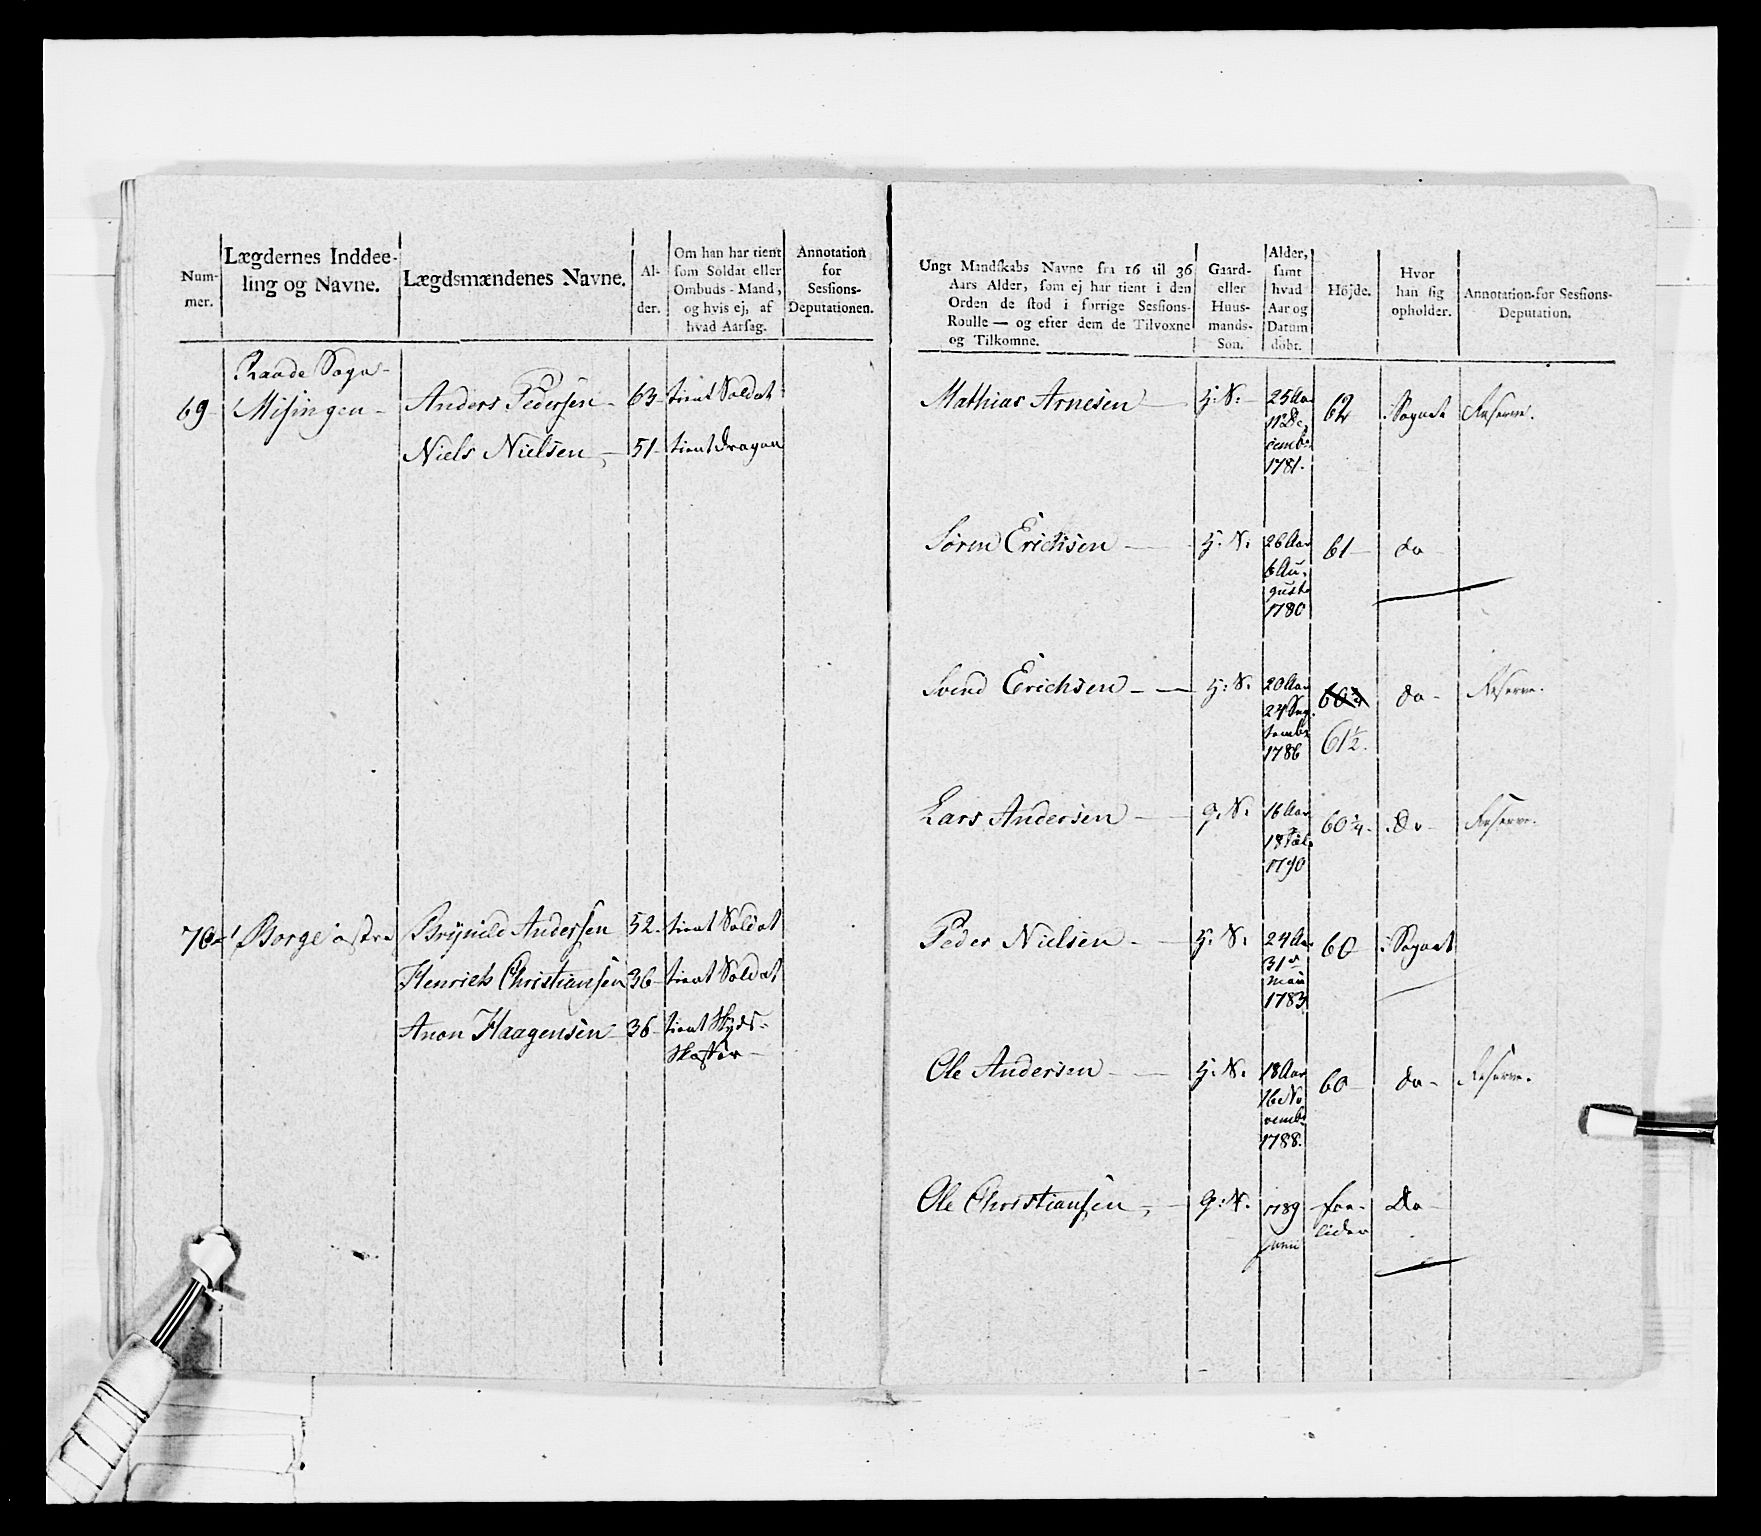 Num-
mer.
Lægdernes Inddee-
ling og Navne.
Lægdsmændenes Navne.
Al-
der.
Om han har tient
som Soldat eller
Ombuds-Mand,
og hvis ej, af
hvad Aarsag.
Annotation
for
Sessions-
Deputationen.
Raade Sogn
69 Misingen - Anders Pedersen 63 tient Soldat
Niels Nielsen 51 tient Dragon
70 Borge østre Brynild Anderssen 52 tient Soldat
Henrich Christiansen 36 tient Soldat
Anon Haagensen 36 tient Skyds-
Skaffer
Ungt Mandskabs Navne fra 16 til 36
Aars Alder, som ej har tient i den
Orden de stod i forrige Sessions-
Roulle — og efter dem de Tilvoxne
og Tilkomne.
Gaard-
eller
Huus-
mands-
Son.
Alder,
samt
hvad
Aar og
Datum
døbt.
Højde.
Hvor
han sig
opholder.
Annotation for Sessions-
Deputation.
Mathias Arnesen H: S: 25 Aar 62 i Sognet Reserve.
11 De
cembr
1781.
Søren Erichsen H: S: 26 Aar 61 do
6 Au-
gusti
1780
Svend Erichsen H: S: 20 Aar 60¾ do Reserve.
24 Sep
tembr
1786 61½
Lars Andersen G: S: 16 Aar 60¼ Do Reserve.
18 Jul.
1790
Peder Nielsen H: S: 24 Aar 60 i Sognet
31
Maii
1783
Ole Andersen H: S: 18 Aar 60 do Reserve.
16 No
vembr
1788.
Ole Christiansen G: S: 1789 for- Do
liden
Junii